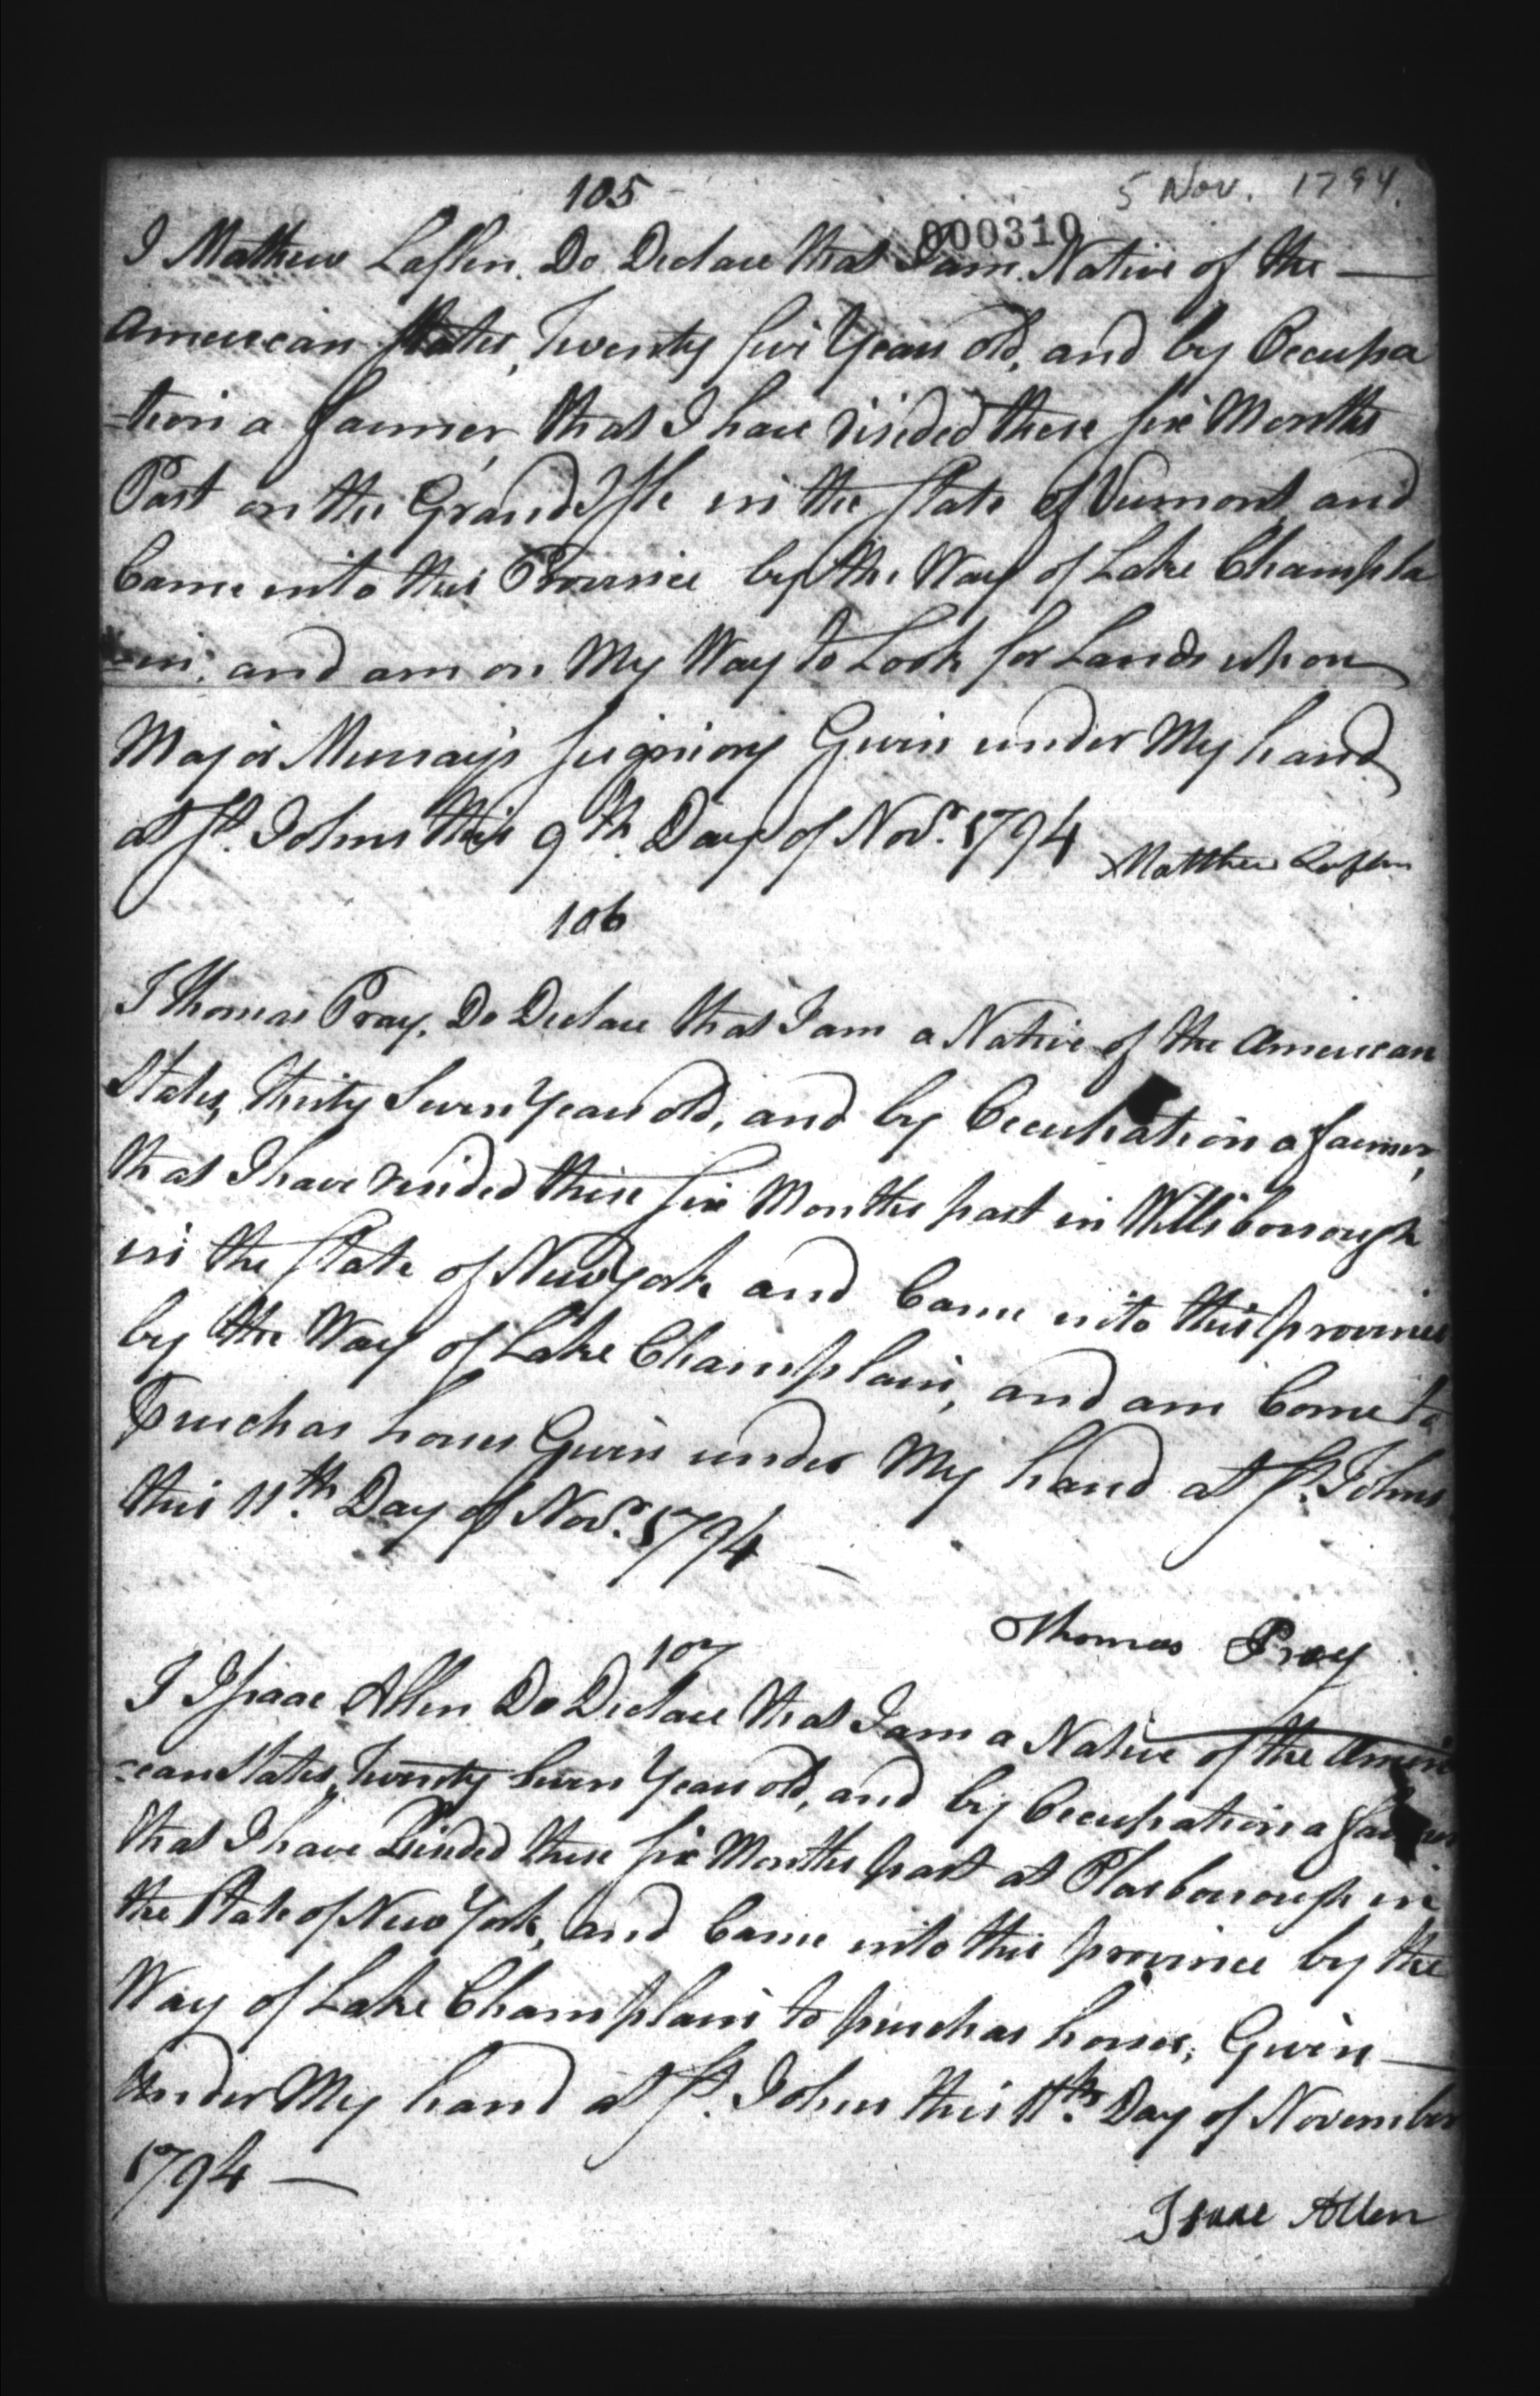 105
5 Nov. 1794.
000310
I Mathew Laflen. Do Declare that I am Native of the —
American States, Twenty five Years old, and by Occupa
-tion a farmer, that I have risided these six Months
Past on the Grand Isle in the State of Vermont and
Came into this Province by the Way of Lake Champla
-in, and am on My Way to Look for Lands whon
Major Murrays Seigniory Given under My hand
at St. Johns this 9th. Day of Novr. 1794 Matthew Laflen
106
I Thomas Pray, Do Declare that I am a Native of the American
States, thirty Seven Years old, and by Occupation a farmer,
that I have resided these six Months past in Willsborough
in the State of New York and Came into this province
by the Way of Lake Champlain, and am Come to
Purchas horses Given under My hand at St. Johns
this 11th. Day of Novr. 1794 —
Thomas Pray
107
I Isaac Allen Do Declare that I am a Native of the Ameri
-can States, Twenty Seven Years old, and by Occupation a farmer
that I have Resided these six Months past at Platborough in
the State of New York, and Came into this province by the
Way of Lake Champlain to purchas horses, Given —
Under My hand at St. Johns this 11th. Day of November
1794 —
Isaac Allen